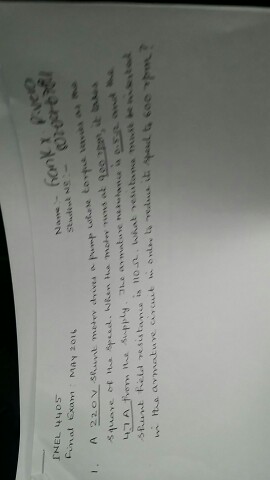 INEL 4405
Final Exam: MAY 2016
Name:-
Student Nº:-
1. A 220V shunt motor drives a pump whose torque varies as the
square of the speed. When the motor runs at 900 rpm, it takes
47A from the supply. The armature resistance is 0.5Ω and the
shunt field resistance is 110 Ω. What resistance must be inserted
in the armature circuit in order to reduce its speed to 600 rpm?